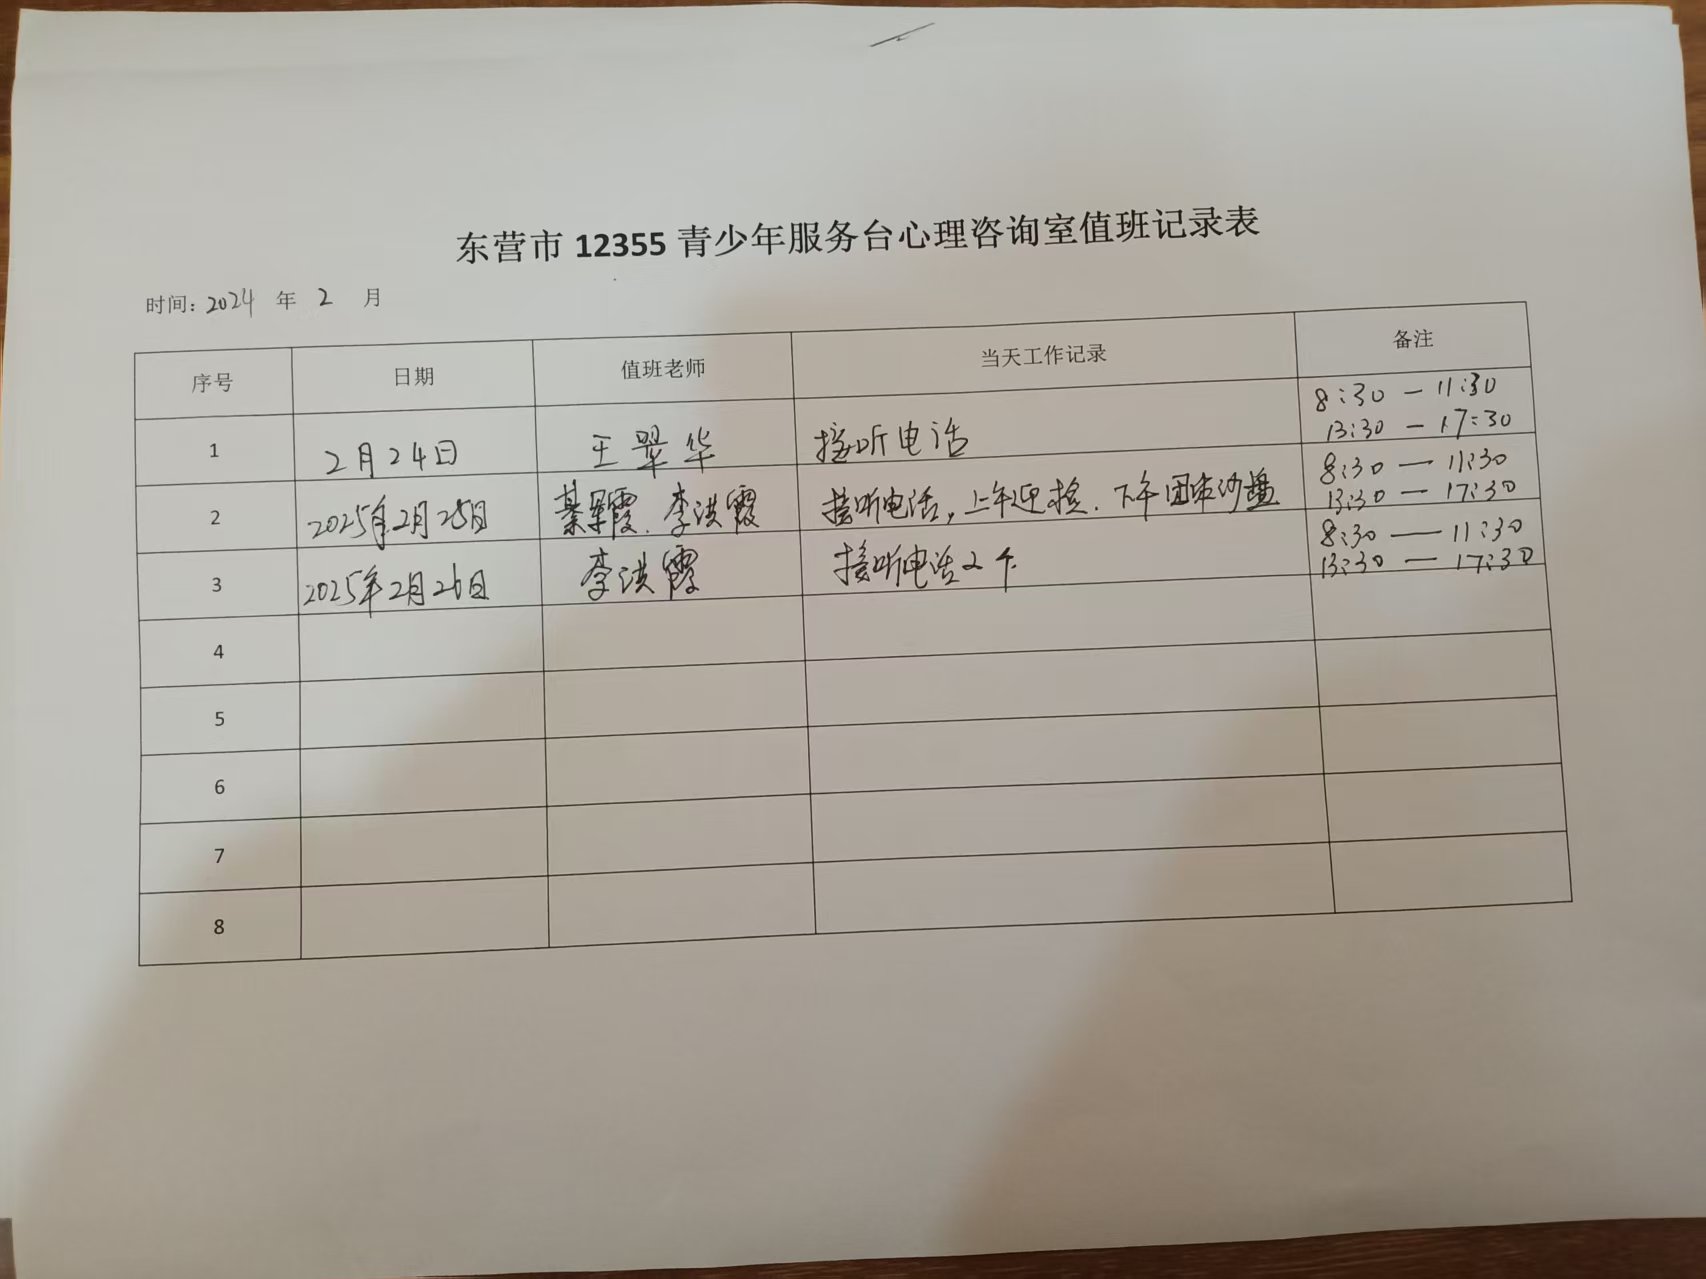 东营市 12355 青少年服务台心理咨询室值班记录表
时间: 2024 年 2 月
序号 日期 值班老师 当天工作记录 备注
1 2月24日 王翠华 接听电话 8:30 — 11:30
13:30 — 17:30
2 2025年2月25日 綦翠霞、李洪霞 接听电话,上午迎检.下午团体沙盘 8:30 — 11:30
13:30 — 17:30
3 2025年2月26日 李洪霞 接听电话2个 8:30 — 11:30
13:30 — 17:30
4
5
6
7
8